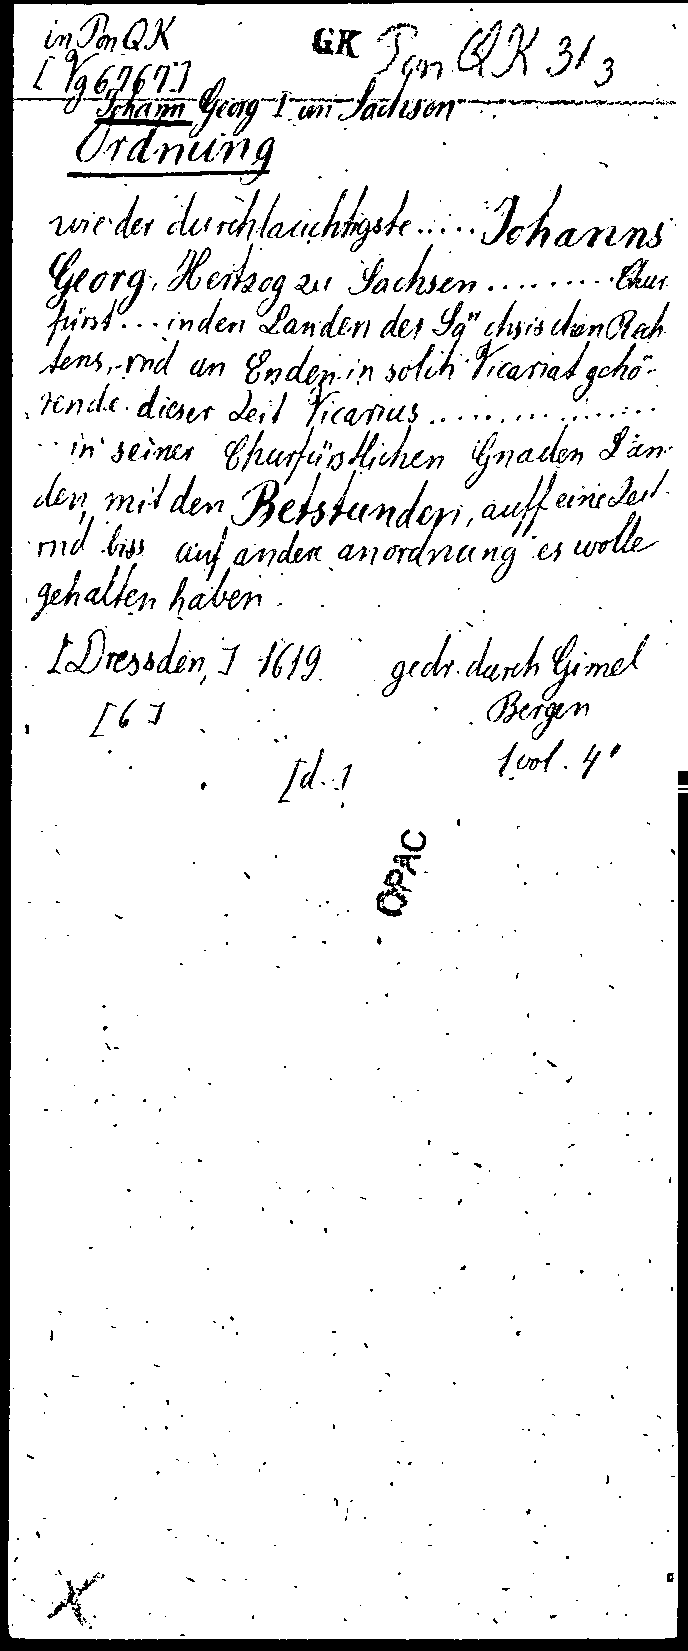 in Pon QK GK Pon QK 31, 3
[Vg 6767]
Johann Georg I von Sachsen
Ordnung
wie der durchlauchtigste..... Johanns
Georg, Hertzog zu Sachsen ......... Chur
fürst... in den Landen des Sächsischen Rech
tens, vnd an Enden in solch Vicariat gehö-
rende dieser Zeit Vicarius ................
.. in seiner Churfürstlichen Gnaden Län-
den, mit den Betstunden, auff eine Zeit
vnd biss auf andere anordnung es wolle
gehalten haben.
[Dressden,] 1619. gedr. durch Gimel
[6] Bergen
[d.] 1 vol. 4°
OPAC